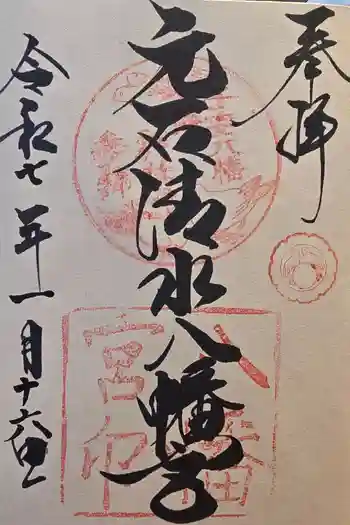 奉拝
元石清水八幡宮
令和七年一月十六日